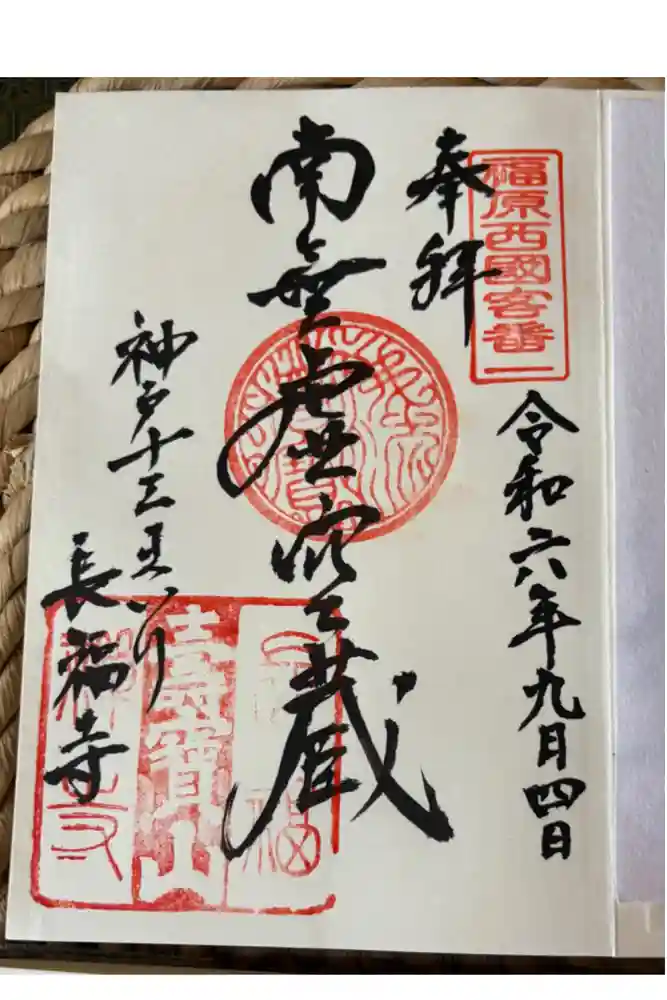 福原西國客番一
奉拝
令和六年九月四日
南無虚空蔵
神戸十三まいり
長福寺
壽寶山